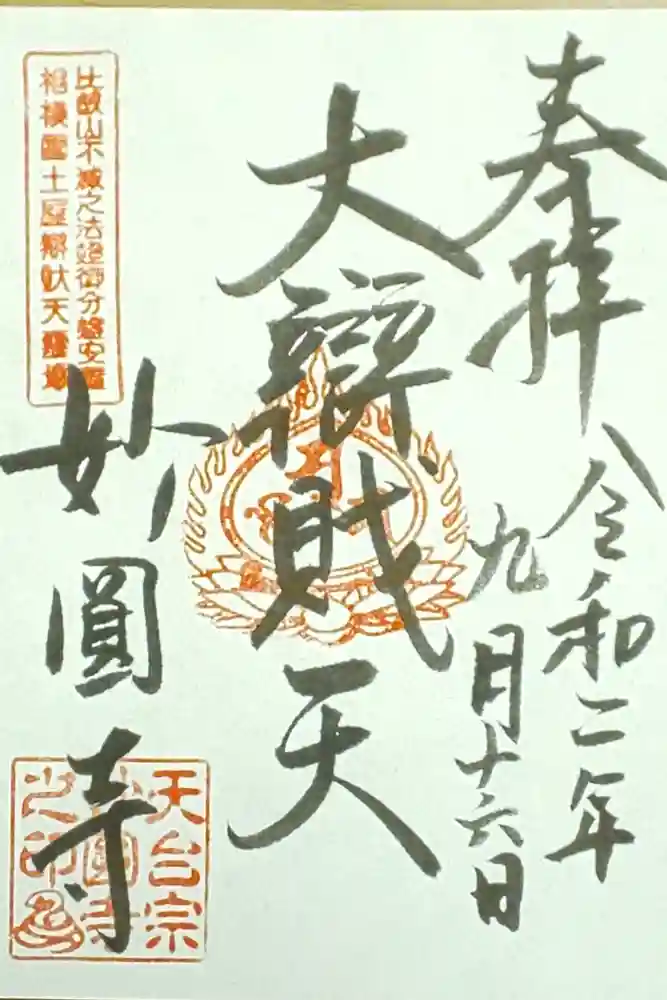 奉拝
令和二年
九月十六日
大辯財天
比叡山不滅之法燈御分燈安置
相模國土屋辯財天霊場
妙圓寺
天台宗
妙圓寺
之印